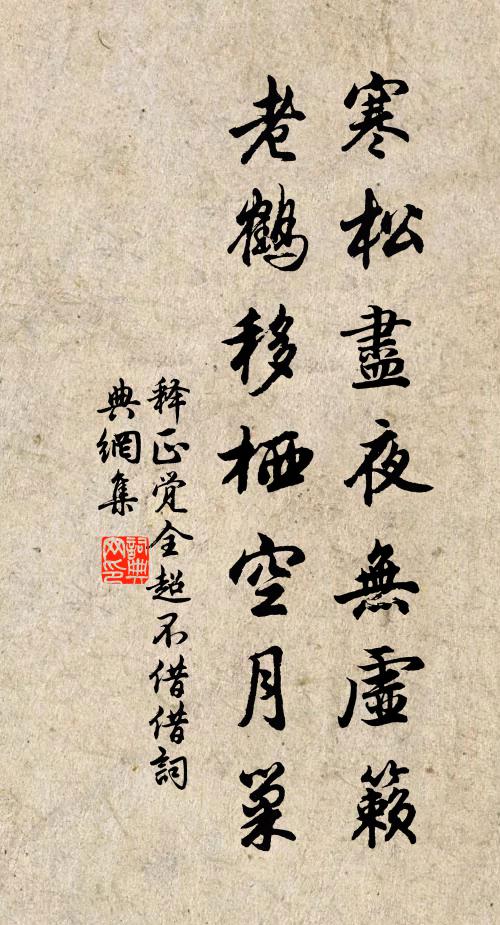 寒松盡夜無虛籟
老鶴移栖空月巢
释正覚全超不借借詞
典網集
詞典
网印